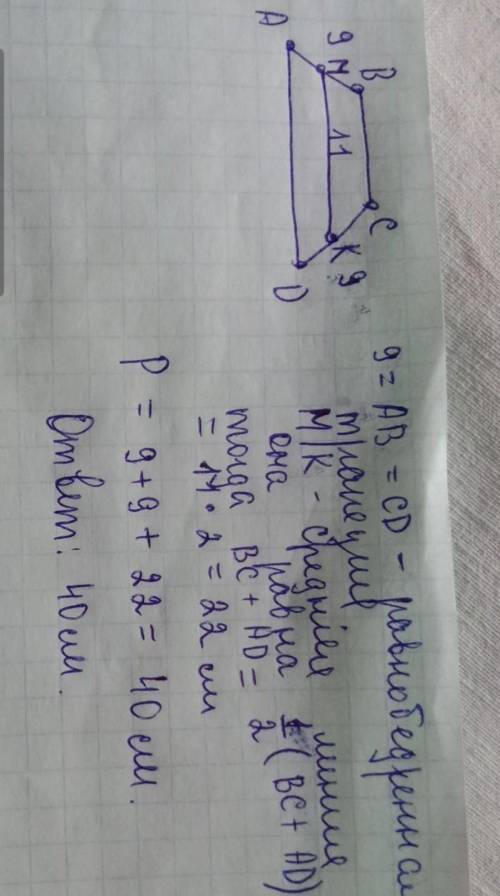 A
9
M
B
11
C
K
9
D
9 = AB = CD – равнобедренная
трапеция
MK - средняя линия
она равна 1/2 (BC + AD)
тогда BC + AD =
= 11 · 2 = 22 см
P = 9 + 9 + 22 = 40 см.
Ответ: 40 см.